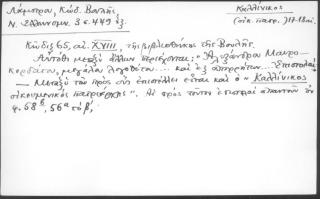 Λάμπρου, Κώδ. Βουλῆς
Ν. Ἑλληνομν. 3 σ. 449 ἑξ.
Καλλίνικος
(οἰκ. πατρ.) 17-18 αι.
Κώδιξ 65, αἰ. XVIII, τῆς βιβλιοθήκης τῆς Βουλῆς.
Αὐτόθι μεταξὺ ἄλλων περιέχονται: "Ἀλεξάνδρου Μαυρο-
κορδάτου, μεγάλου λογοθέτου.... καὶ ἐξ ἀπορρήτων... Ἐπιστολαί
— Μεταξὺ τῶν πρὸς οὓς ἐπιστέλλει εἶναι καὶ ὁ "Καλλίνικος
οἰκουμενικὸς πατριάρχης". Αἱ πρὸς τοῦτον ἐπιστολαὶ ἀπαντῶσιν ἐν
φ. 58 β, 56α